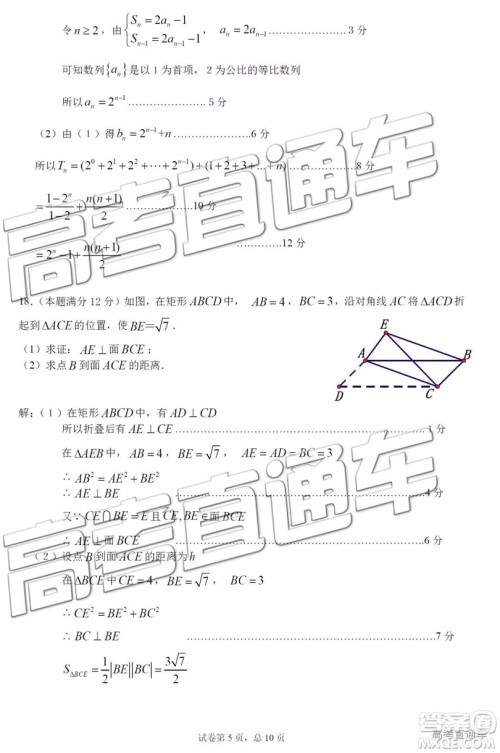 令 n≥2，由{S_n=2a_n−1 S_{n−1}=2a_{n−1}−1，a_n=2a_{n−1}…………………3 分
可知数列{a_n}是以 1 为首项，2 为公比的等比数列
所以 a_n=2^{n−1}…………………5 分
（2）由（1）得 b_n=2^{n−1}+n…………………6分
所以 T_n=(2^0+2^1+2^2+⋯+2^{n−1})+(1+2+3…+n)…………………8 分
=(1−2^n)/(1−2)+n(n+1)/2…………………10 分
=2^n−1+n(n+1)/2…………………12 分
18.（本题满分 12 分）如图，在矩形 ABCD 中，AB=4，BC=3，沿对角线 AC 将ΔACD 折
起到ΔACE 的位置，使 BE=√7．
（1）求证：AE⊥面 BCE；
（2）求点 B 到面 ACE 的距离．
E
A
B
D
C
解：（1）在矩形 ABCD 中，有 AD⊥CD
所以折叠后有 AE⊥CE…………………1 分
在ΔAEB 中，AB=4，BE=√7，AE=AD=BC=3
∴ AB²=AE²+BE²
∴ AE⊥BE…………………4 分
又∵CE∩BE=E 且 CE,BE∈面 BCE
∴ AE⊥面 BCE…………………6 分
（2）设点 B 到面 ACE 的距离为 h
在ΔBCE 中 CE=4，BE=√7，BC=3
∴ CE²=BE²+BC²
∴ BC⊥BE…………………7 分
S_{ΔBCE}=1/2|BE||BC|=3√7/2
试卷第 5 页，总 10 页
高考直通车
高考直通车
高考直通车